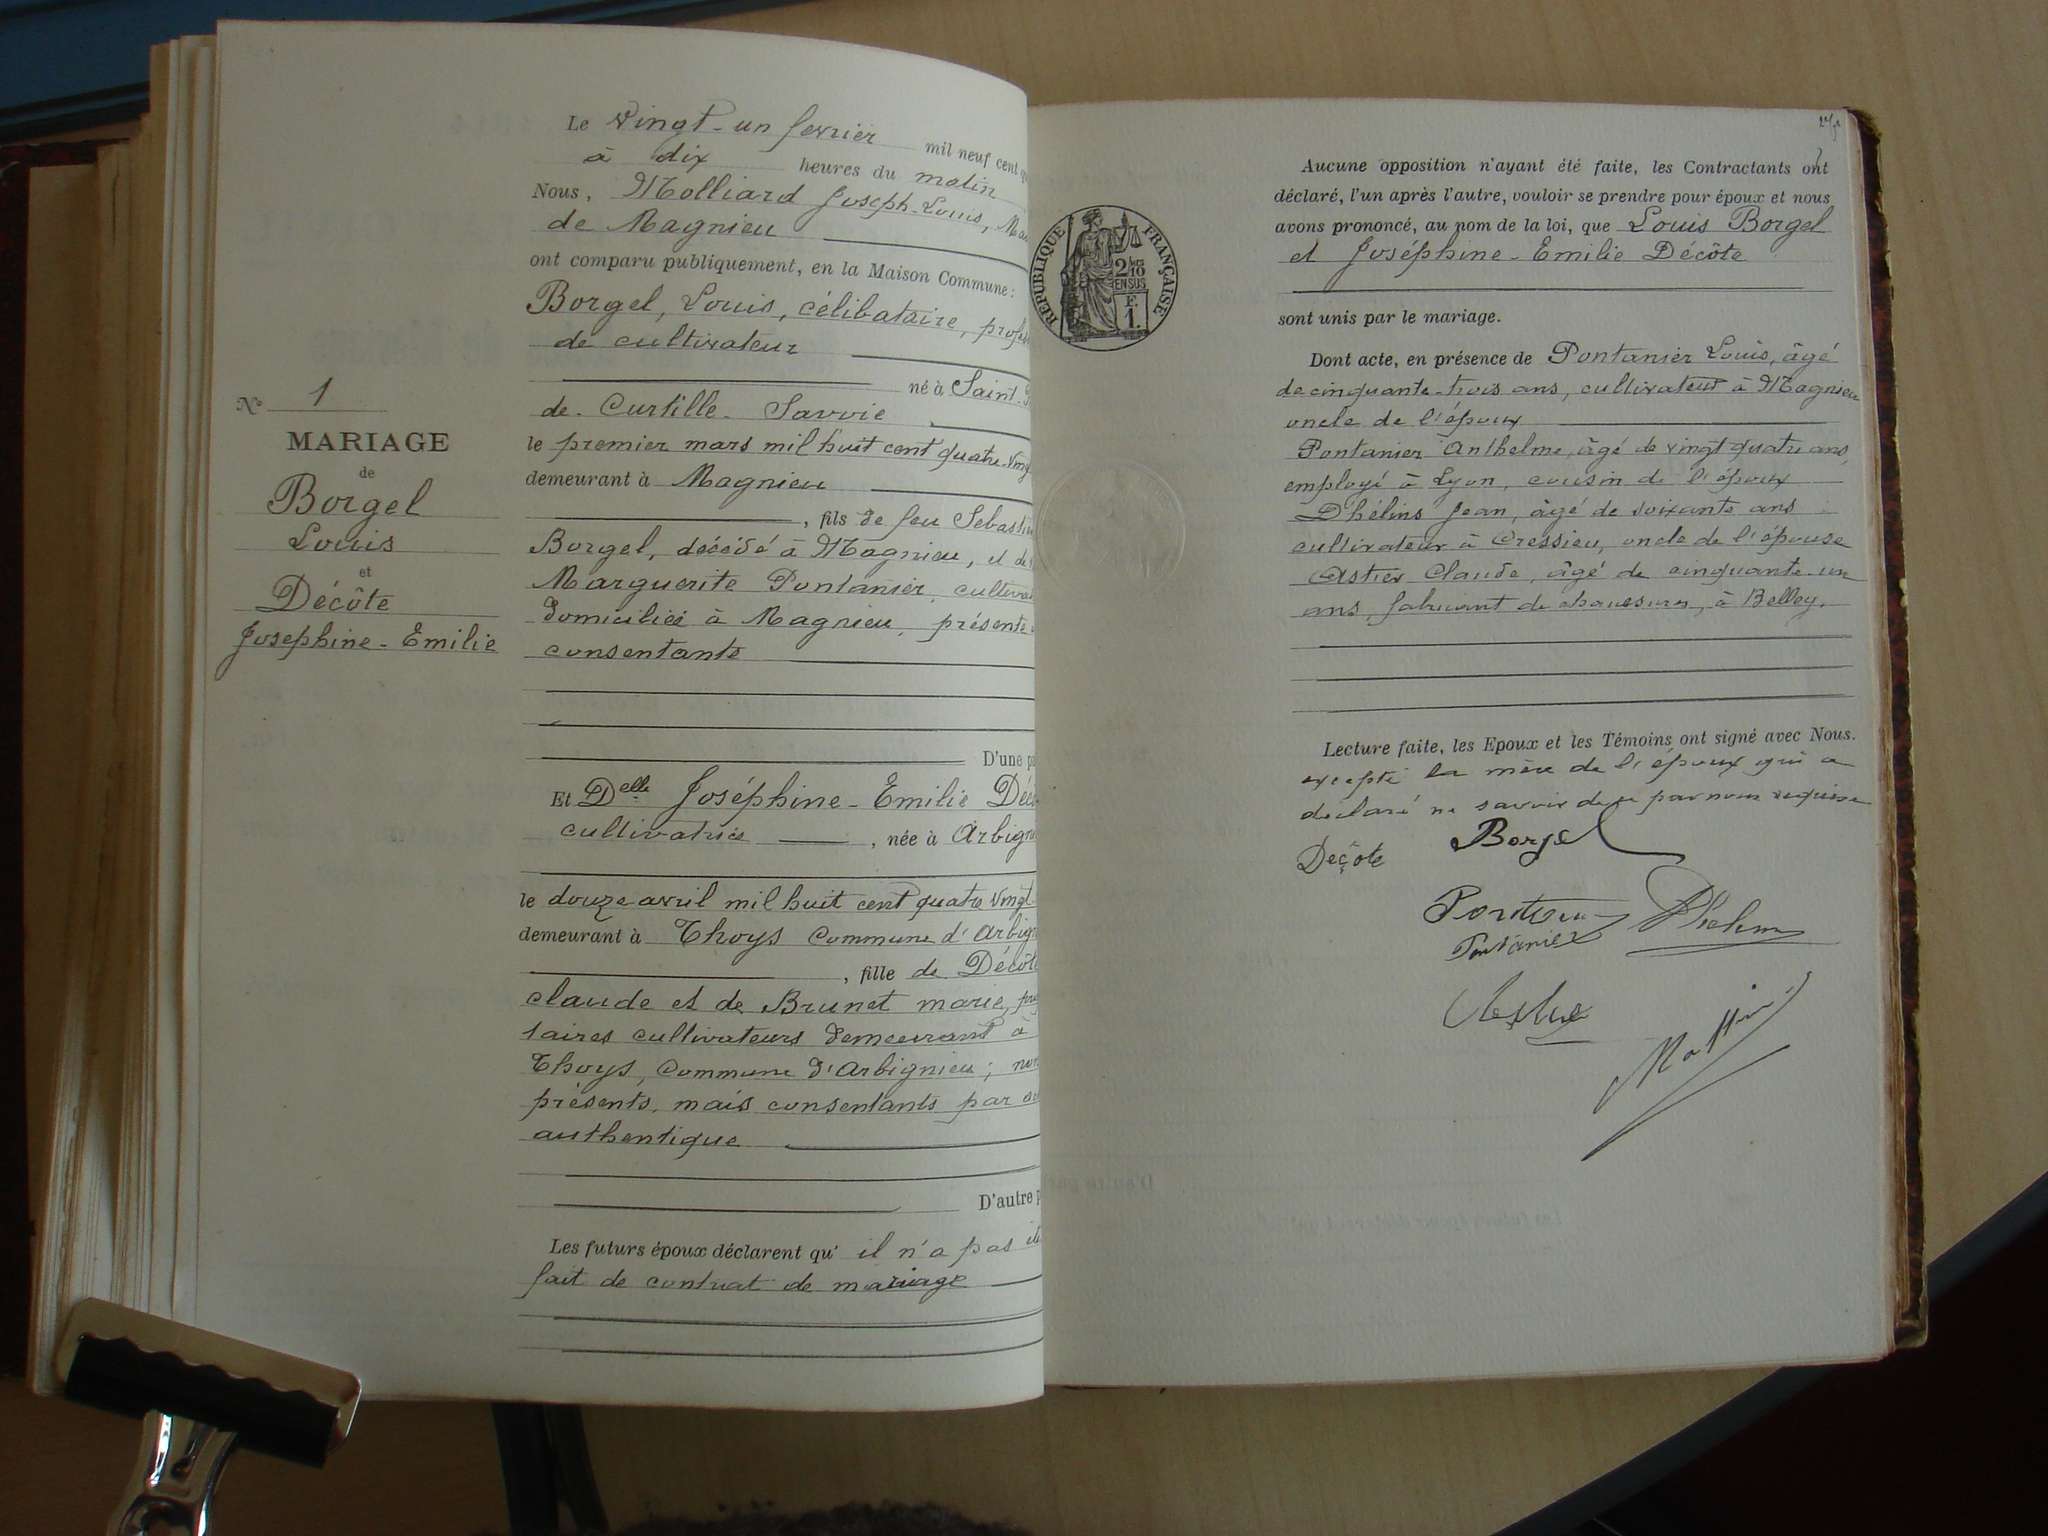 Le Vingt-un fevrier mil neuf cent
à dix heures du matin
Nous, Molliard Joseph-Louis,
de Magnieu
ont comparu publiquement, en la Maison Commune:
Borgel, Louis, célibataire,
de cultivateur
né à Saint-
de-Curtille-Savoie
le premier mars mil huit cent quatre-ving
demeurant à Magnieu
, fils de feu Sebasti
Borgel, décédé à Magnieu, et de
Marguerite Pontanier, cultiva
domiciliée à Magnieu, présente
consentante
D'une p
Et Delle Joséphine-Emilie Déc
cultivatrice, née à Arbign
le douze avril mil huit cent quatre vingt
demeurant à Thoys Commune d'Arbign
, fille de Décôt
claude et de Brunet marie, p
taires cultivateurs demeurant à
Thoys, Commune d'Arbignieu; non
présents, mais consentants par
authentique
D'autre p
Les futurs époux déclarent qu'il n'a pas été
fait de contrat de mariage
N° 1
MARIAGE
de
Borgel
Louis
et
Décôte
Josephine-Emilie
RÉPUBLIQUE FRANÇAISE
2/10
EN SUS
F.
1.
Aucune opposition n'ayant été faite, les Contractants ont
déclaré, l'un après l'autre, vouloir se prendre pour époux et nous
avons prononcé, au nom de la loi, que Louis Borgel
et Joséphine-Emilie Décôte
sont unis par le mariage.
Dont acte, en présence de Pontanier Louis, âgé
de cinquante-trois ans, cultivateur à Magnieu
oncle de l'époux
Pontanier Anthelme, âgé de vingt quatre ans,
employé à Lyon, cousin de l'époux
D'hélins Jean, âgé de soixante ans
cultivateur à Cressieu, oncle de l'épouse
Astier Claude, âgé de cinquante-un
ans, fabricant de chaussures, à Belley.
Lecture faite, les Epoux et les Témoins ont signé avec Nous.
excepté la mère de l'époux qui a
déclaré ne savoir de ce par nous requise
Decôte Borgel
Pontanier